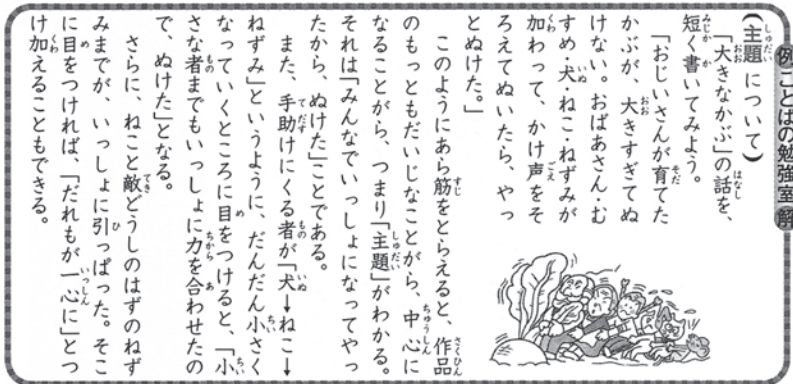 例 ことばの勉強室 解
(主題について)
「大きなかぶ」の話を、
短く書いてみよう。
「おじいさんが育てた
かぶが、大きすぎてぬ
けない。おばあさん・む
すめ・犬・ねこ・ねずみが
加わって、かけ声をそ
ろえてぬいたら、やっ
とぬけた。」
このようにあら筋をとらえると、作品
のもっともだいじなことがら、中心に
なることがら、つまり「主題」がわかる。
それは「みんなでいっしょになってやっ
たから、ぬけた」ことである。
また、手助けにくる者が「犬→ねこ→
ねずみ」というように、だんだん小さく
なっていくところに目をつけると、「小
さな者までもいっしょに力を合わせたの
で、ぬけた」となる。
さらに、ねこと敵どうしのはずのねず
みまでが、いっしょに引っぱった。そこ
に目をつければ、「だれもが一心に」とつ
け加えることもできる。